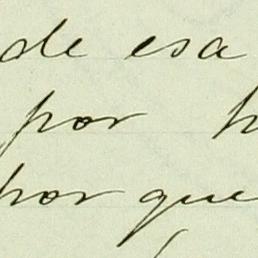 de esa
por
por que